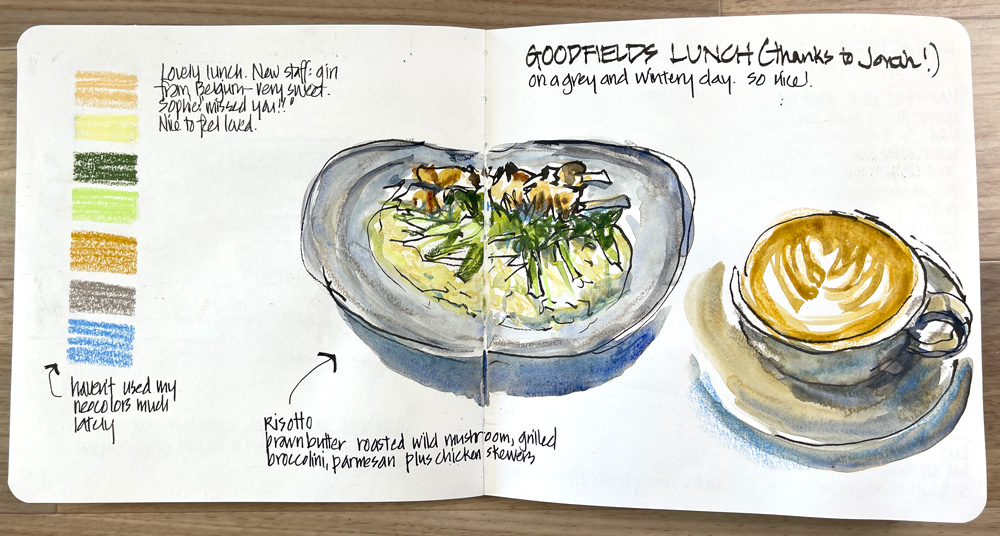 Lovely lunch. New staff: girl
from Belgium - very sweet.
Sophie: "missed you!!"
Nice to feel loved.
GOODFIELDS LUNCH (thanks to Jonah!)
on a grey and wintery day. So nice!
haven't used my
neocolors much
lately
Risotto
brown butter roasted wild mushroom, grilled
broccolini, parmesan plus chicken skewers